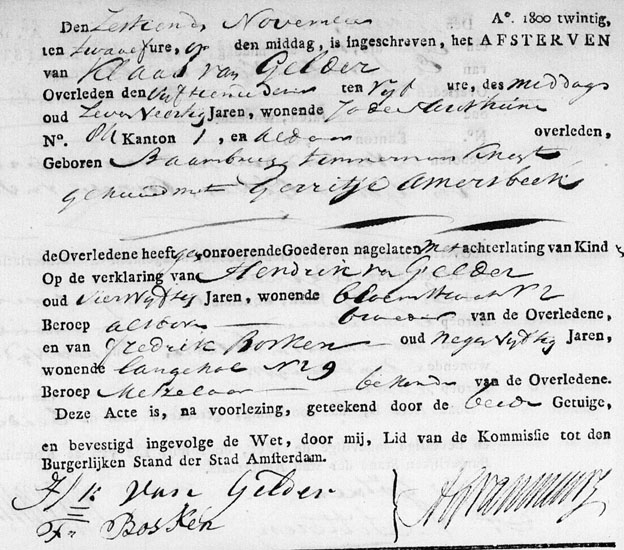 Den Zestiende November Aº. 1800 twintig,
ten twaalf ure, op den middag, is ingeschreven, het AFSTERVEN
van Klaas van Gelder
Overleden den Vijftiende deser ten Vijf ure, des middags
oud Zeven Veertig Jaren, wonende
Nº. Kanton 1, en aldaar overleden,
Geboren timmermans Knegt
gehuwd met Gerritje Amersbeek
de Overledene heeft ge onroerende Goederen nagelaten met achterlating van Kind
Op de verklaring van Hendrik van Gelder
oud Vier Vijftig Jaren, wonende Bloemstraat Nº 2
Beroep als boven broeder van de Overledene,
en van Fredrik Bosken oud Negen Vijftig Jaren,
wonende Langehoe Nº 9
Beroep Metzelaar bekende van de Overledene.
Deze Acte is, na voorlezing, geteekend door de beide Getuige,
en bevestigd ingevolge de Wet, door mij, Lid van de Kommissie tot den
Burgerlijken Stand der Stad Amsterdam.
Hk Van Gelder
Fr Bosken